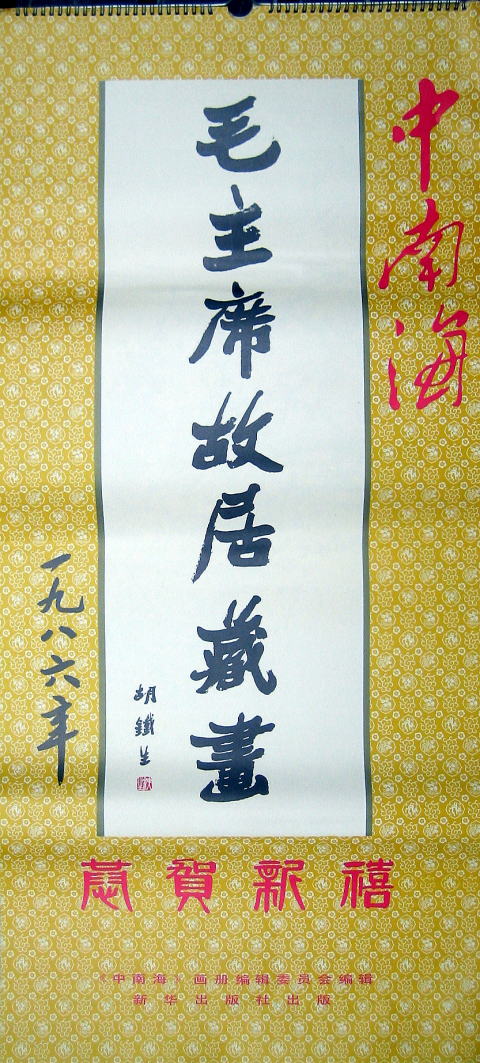 中南海
毛主席故居藏畫
胡鐵生
一九八六年
恭賀新禧
《中南海》画册编辑委员会编辑
新华出版社出版